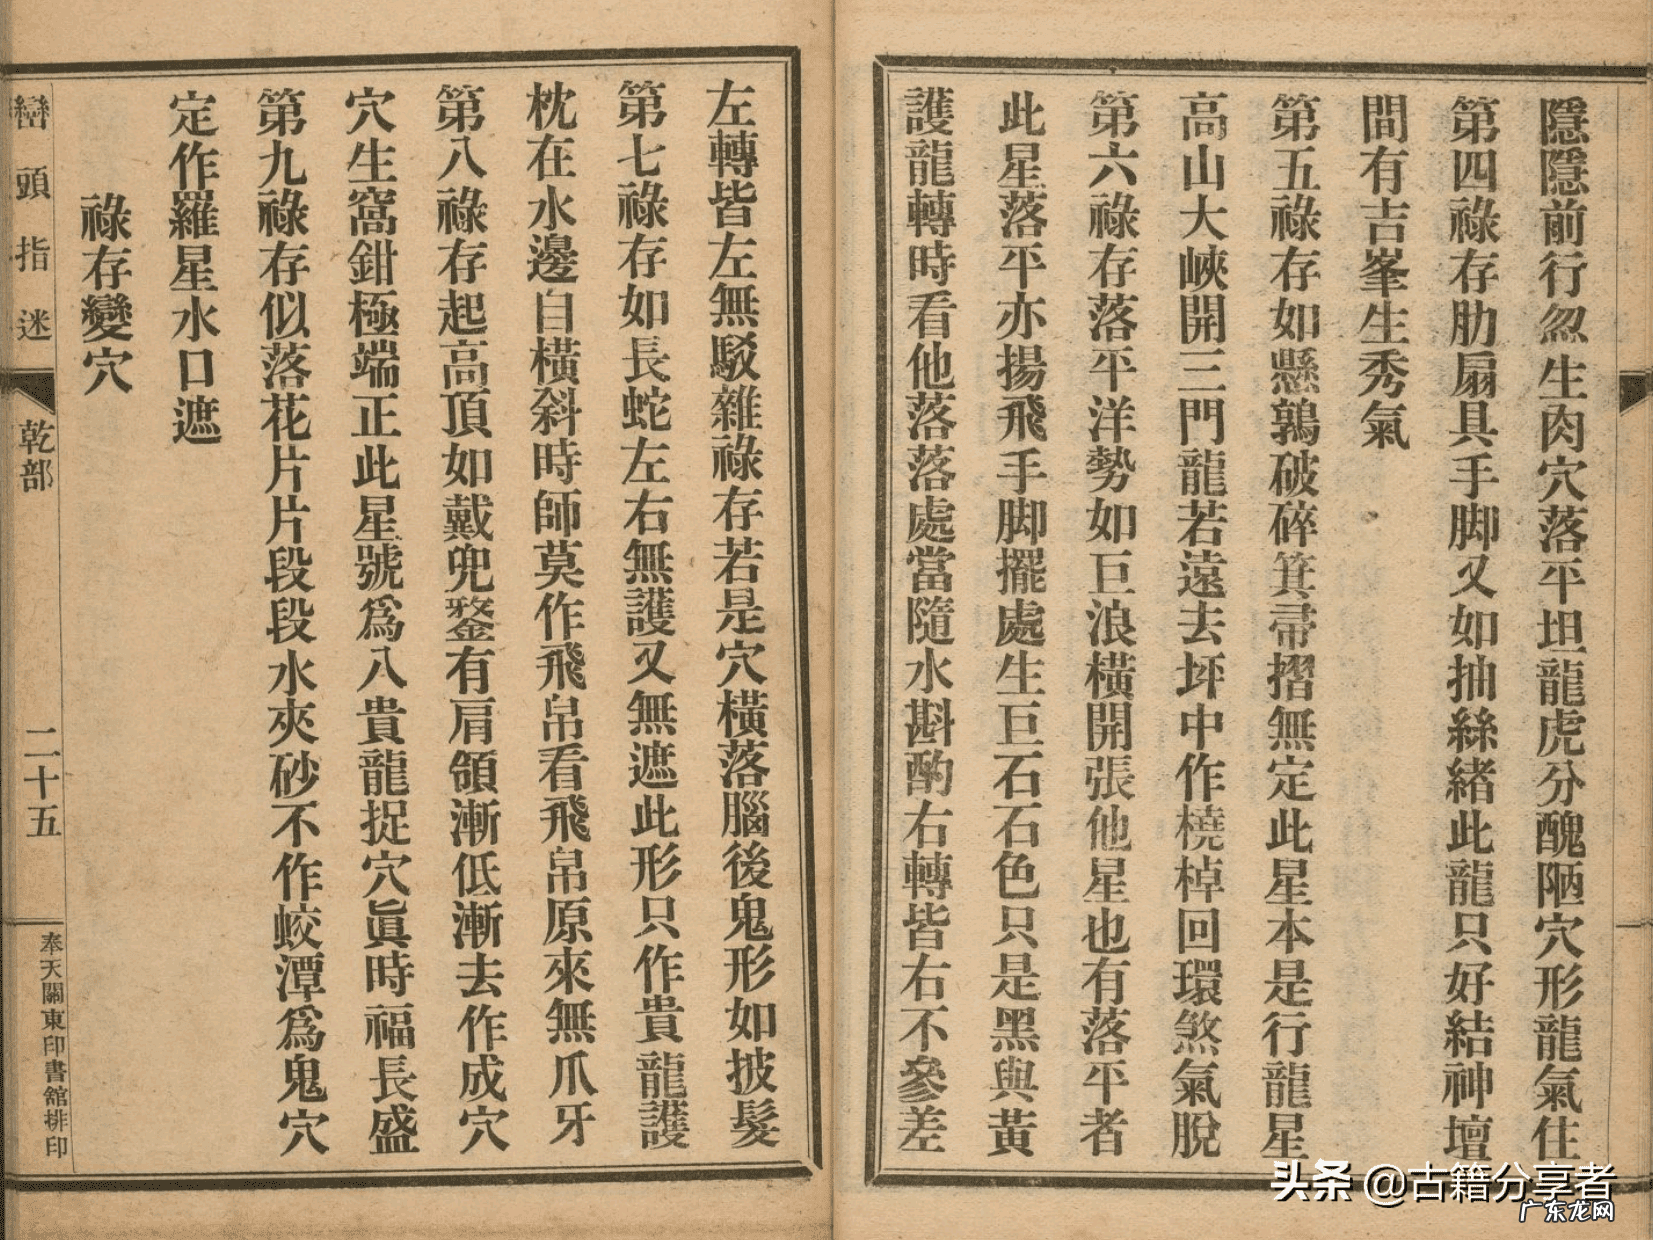 隱隱前行忽生肉穴落平坦龍虎分醜陋穴形龍氣住
第四祿存肋扇具手脚又如抽絲緒此龍只好結神壇
間有吉峯生秀氣
第五祿存如懸鶉破碎箕帚摺無定此星本是行龍星
高山大峽開三門龍若遠去坪中作橈棹回環煞氣脫
第六祿存落平洋勢如巨浪橫開張他星也有落平者
此星落平亦揚飛手脚擺處生巨石石色只是黑與黃
護龍轉時看他落落處當隨水斟酌右轉皆右不參差
左轉皆左無駁雜祿存若是穴橫落腦後鬼形如披髮
第七祿存如長蛇左右無護又無遮此形只作貴龍護
枕在水邊自橫斜時師莫作飛帛看飛帛原來無爪牙
第八祿存起高頂如戴兜鍪有肩領漸低漸去作成穴
穴生窩鉗極端正此星號爲八貴龍捉穴眞時福長盛
第九祿存似落花片片段段水夾砂不作蛟潭爲鬼穴
定作羅星水口遮
祿存變穴
巒頭指迷
乾部
二十五
奉天關東印書館排印
头条 @古籍分享者
广东龙网